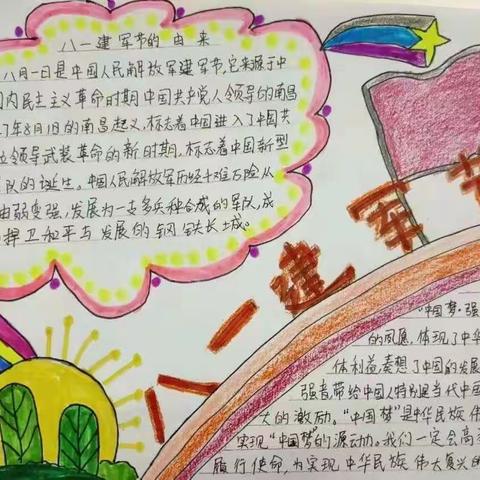 八一建军节的由来
八月一日是中国人民解放军建军节,它来源于中
国内民主主义革命时期中国共产党人领导的南昌
7年8月1日的南昌起义,标志着中国进入了中国共
领导武装革命的新时期,标志着中国新型
队的诞生。中国人民解放军历经千难万险从
由弱变强,发展为一支多兵种合成的军队,成
捍卫和平与发展的钢铁长城。
八一建军节
"中国梦·强
的夙愿,体现了中华
体利益奏想了中国的发展
强者带给中国人特别是当代中国
大的激励。"中国梦"是中华民族伟
实现"中国梦"的源动。我们一定会高
履行使命,为实现中华民族伟大复兴的